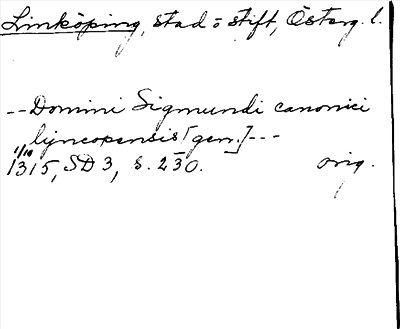 Linköping, stad o stift, Österg. l.
--Domini Sigmundi canonici
lyncopensis [gen.]---
1/10
1315, SD 3, s. 230.    orig.